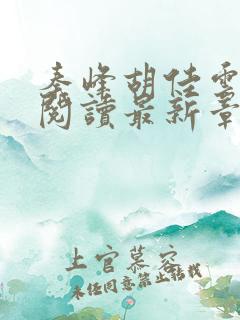 秦峰胡佳雲
閱讀最新章
上官慕容
未經同意禁止轉載